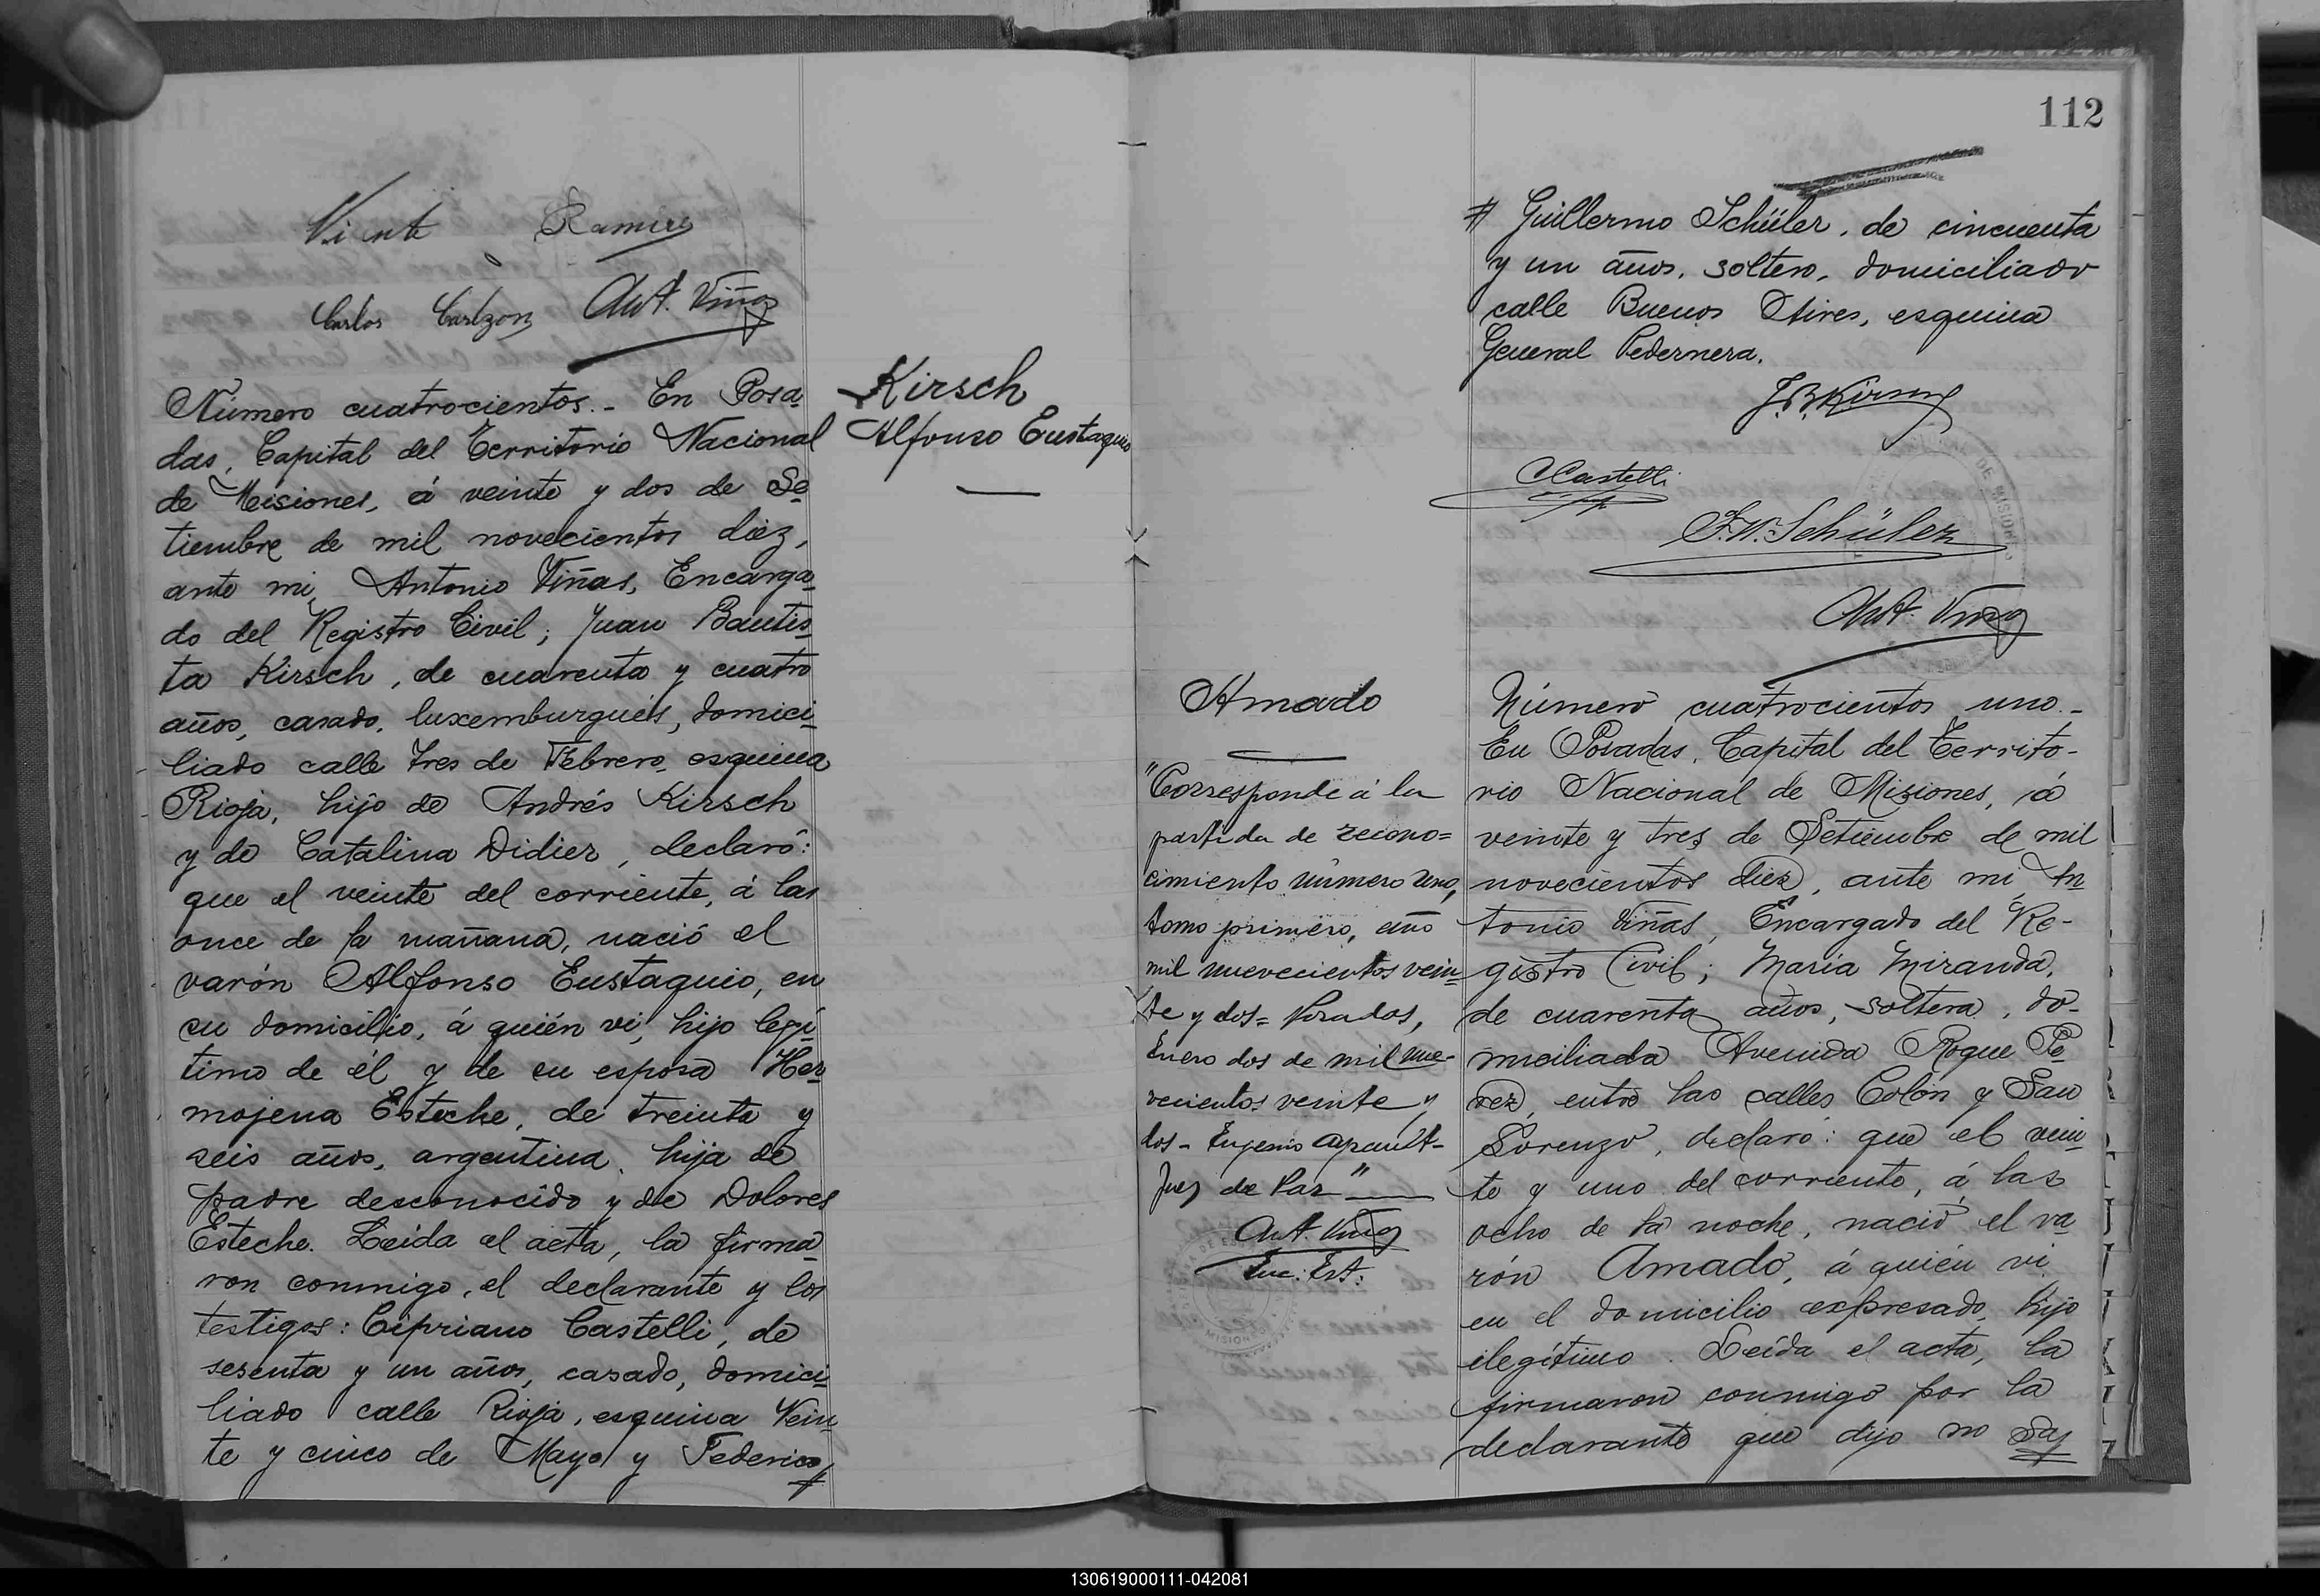 Vicente Ramirez
Carlos Carlzon Ant. Viñas
Número cuatrocientos.- En Posa-
das, Capital del Territorio Nacional
de Misiones, á veinte y dos de Se-
tiembre de mil novecientos diez,
ante mi, Antonio Viñas, Encarga-
do del Registro Civil; Juan Bautis-
ta Kirsch, de cuarenta y cuatro
años, casado, luxemburgués, domici-
liado calle tres de Febrero, esquina
Rioja, hijo de Andrés Kirsch
y de Catalina Didier, declaró:
que el veinte del corriente, á las
once de la mañana, nació el
varón Alfonso Eustaquio, en
su domicilio, á quién vi, hijo legí-
timo de él y de su esposa Her-
mojena Esteche, de treinta y
seis años, argentina, hija de
padre desconocido y de Dolores
Esteche. Leída el acta, la firma-
ron conmigo, el declarante y los
testigos: Cipriano Castelli, de
sesenta y un años, casado, domici-
liado calle Rioja, esquina Vein-
te y cinco de Mayo y Federico #
Kirsch
Alfonso Eustaquio
112
# Guillermo Schüler, de cincuenta
y un años, soltero, domiciliado
calle Buenos Aires, esquina
General Pedernera.
J.B. Kirsch
CCastelli
F.W. Schüler
Ant. Viñas
Amado
"Corresponde á la
partida de recono=
cimiento número uno,
tomo primero, año
mil nuevecientos vein-
te y dos= Posadas,
Enero dos de mil nue-
vecientos veinte y
dos- Eugenio
Juez de Paz"
Ant. Viñas
Enc. Est.
Número cuatrocientos uno.-
En Posadas, Capital del Territo-
rio Nacional de Misiones, á
veinte y tres de Setiembre de mil
novecientos diez, ante mi, An-
tonio Viñas, Encargado del Re-
gistro Civil; María Miranda,
de cuarenta años, soltera, do-
miciliada Avenida Roque Pe-
rez, entre las calles Colón y San
Lorenzo, declaró: que el vein-
te y uno del corriente, á las
ocho de la noche, nació el va-
rón Amado, á quién vi
en el domicilio expresado, hijo
ilegítimo. Leída el acta, la
firmaron conmigo por la
declarante que dijo no sa-
130619000111-042081